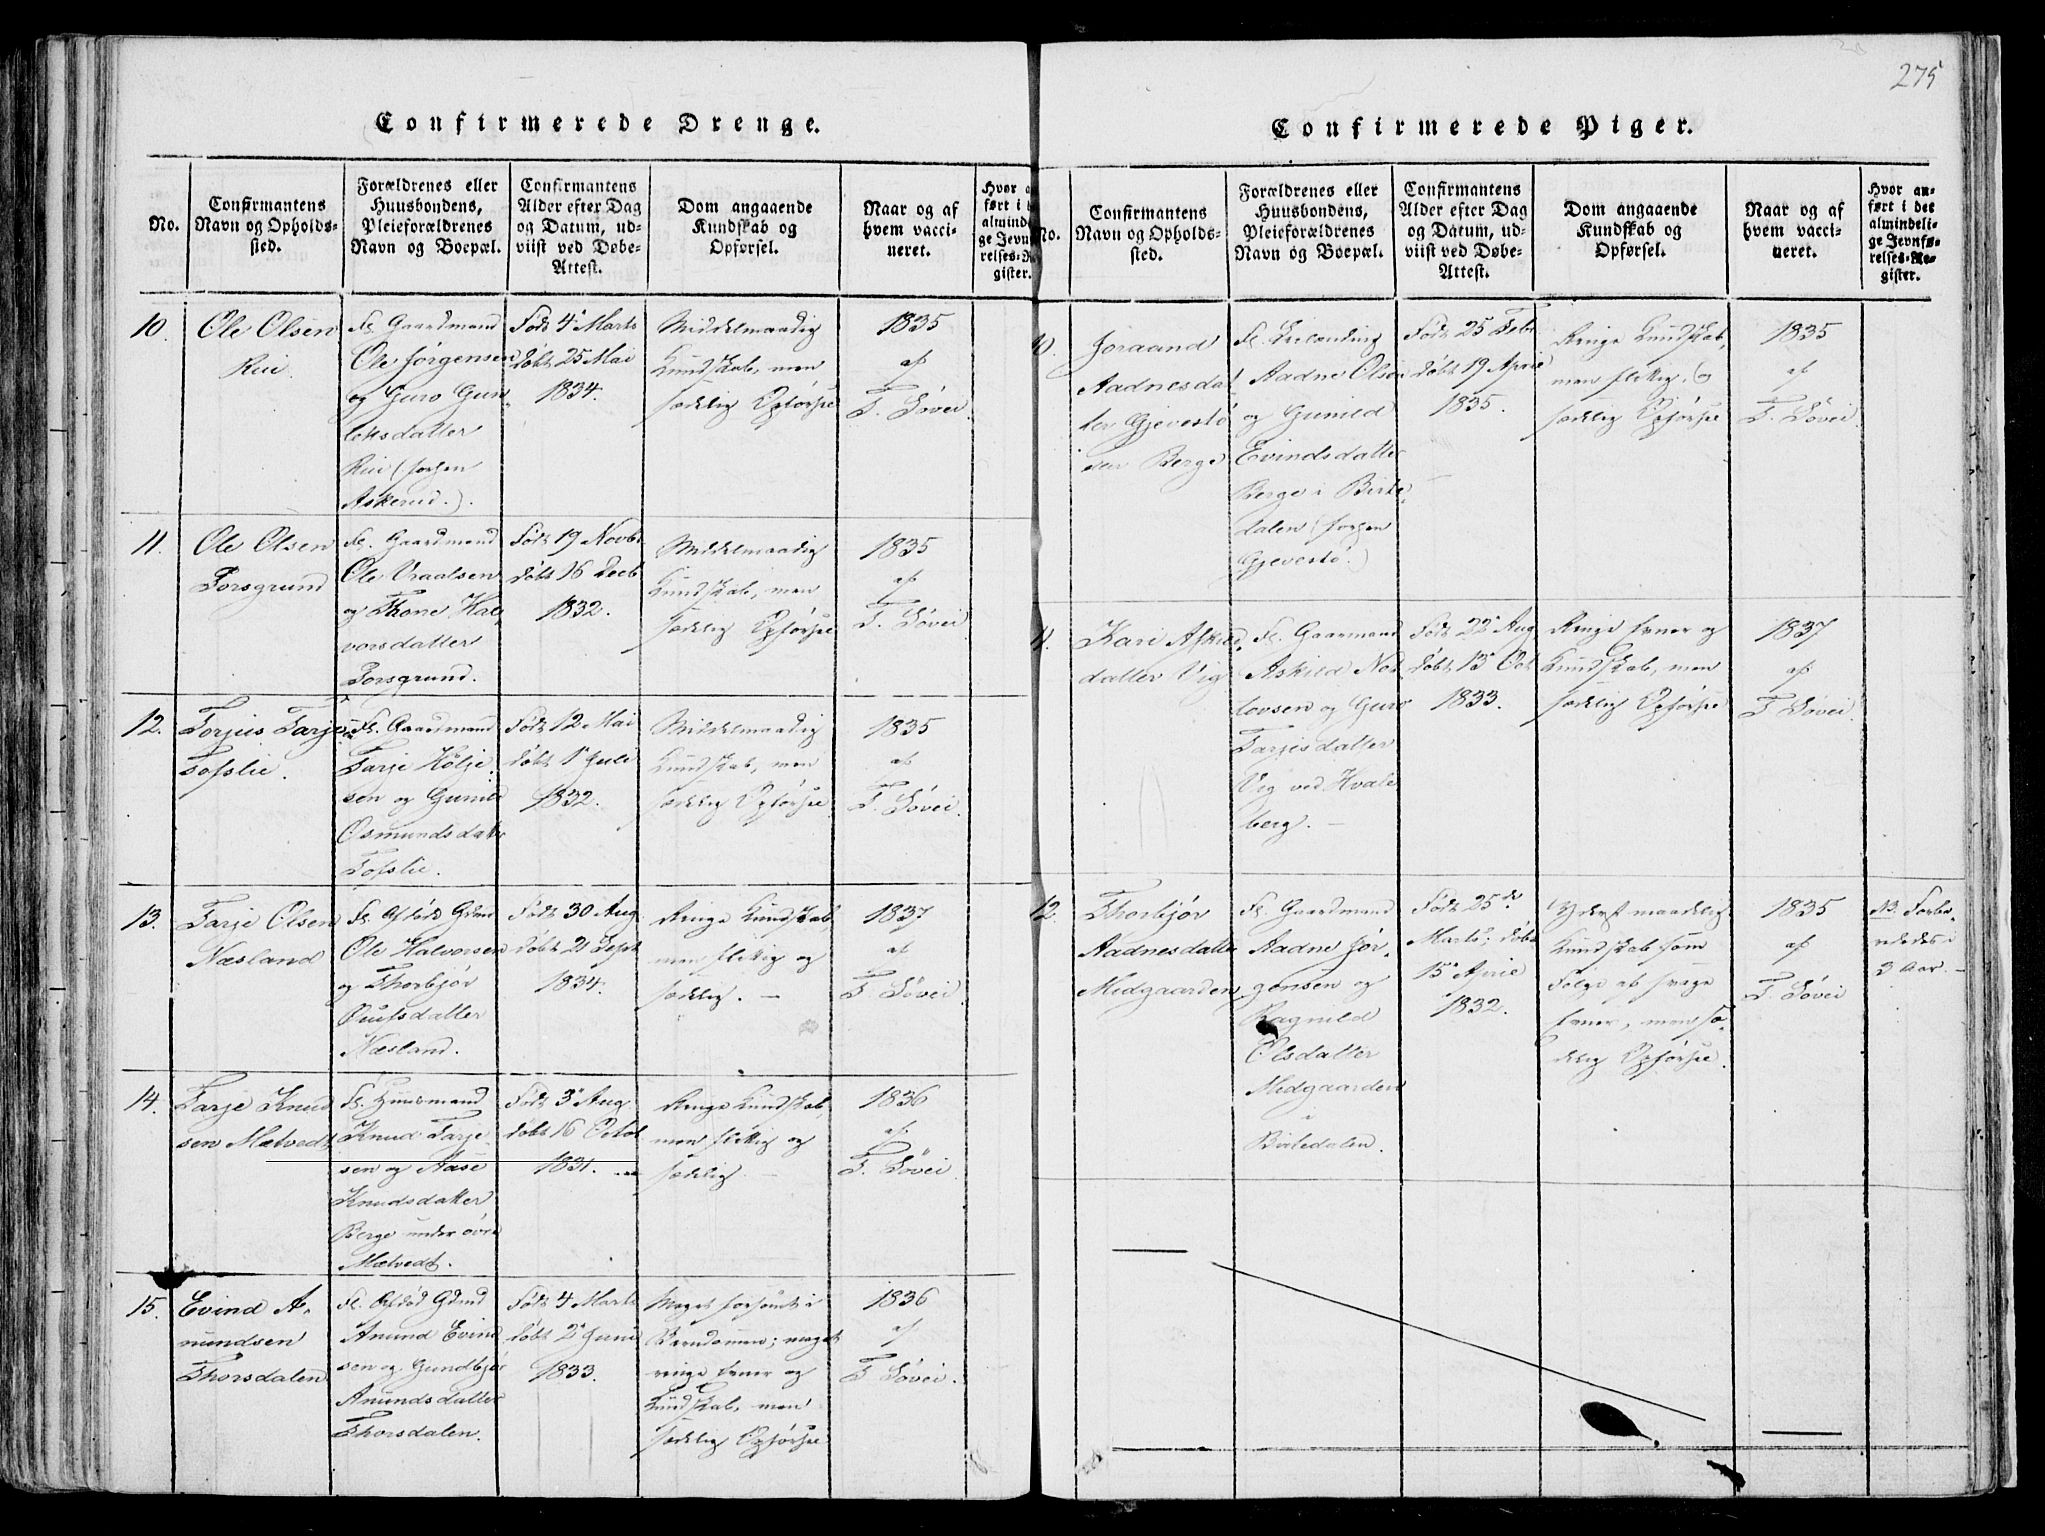 275
Confirmerede Drenge.
No.
Confirmantens
Navn og Opholds-
sted.
Forældrenes eller
Huusbondens,
Pleieforældrenes
Navn og Boepæl.
Confirmantens
Alder efter Dag
og Datum, ud-
viist ved Døbe-
Attest.
Dom angaaende
Kundskab og
Opførsel.
Naar og af
hvem vacci-
neret.
Hvor
ført i
almind
ge Jevn
relses-
gister.
10.
Ole Olsen
Rui
Gaardmand
Ole Jørgensen
og Guro Gun
leksdatter
Rui (forhen
Askerud.).
Født 4 Marts
døbt 25 Mai
1834.
Middelmaadig
Kundskab, men
sædelig Opførsel
1835
af
T. Løvei
11.
Ole Olsen
Forsgrund
Gaardmand
Ole Vraalsen
og Thone Hal
vorsdatter
Forsgrund.
Født 19 Novbr
døbt 16 Decb
1832.
Middelmaadig
Kundskab, men
sædelig Opførsel
1835
af
T. Løvei
12.
Torjus Tarje
Tofslie.
Gaardmand
Tarje Kølje
sen og Gunild
Osmundsdatter
Tofslie.
Født 12 Mai
døbt 1 Juli
1832.
Middelmaadig
Kundskab, men
sædelig Opførsel
1835
af
T. Løvei
13.
Tarje Olsen
Næsland
Afdøde Gdmd
Ole Halvorsen
og Thorbjør
datter
Næsland.
Født 30 Aug
døbt 21 Sept
1834.
Ringe Kundskab
men flittig og
sædelig. —
1837
af
T. Løvei
14.
Tarje Knud
sen Mætvedt
Huusmand
Knud Tarje
sen og Aase
Knudsdatter
Berge under øvre
Mætvedt.
Født 3 Aug
døbt 16 Octob
1831.
Ringe Kundskab,
men flittig og
sædelig. —
1836
af
T. Løvei
15.
Evind A-
nundsen
Thorsdalen
Afdød Gdmd
Anund Evind
sen og Gundbjør
Anundsdatter
Thorsdalen.
Født 4 Marts
døbt 2 Juni
1833.
Meget forsømt i
Barndommen; meget
ringe Evner og
Kundskab, men
sædelig Opførsel
1836
af
T. Løvei.
Confirmerede Piger.
No.
Confirmantens
Navn og Opholds-
sted.
Forældrenes eller
Huusbondens,
Pleieforældrenes
Navn og Boepæl.
Confirmantens
Alder efter Dag
og Datum, ud-
viist ved Døbe-
Attest.
Dom angaaende
Kundskab og
Opførsel.
Naar og af
hvem vacci-
neret.
Hvor an-
ført i det
almindeli-
ge Jevnfø-
relses-Re-
gister.
10.
Joraand
Aadnesdat
ter Gjevestø
Berge
Aadne Olsen
og Gunild
Evindsdatter
Berge i Birte-
dalen (forhen
Gjevestø.)
Født 25 Febr
døbt 19 April
1835.
Ringe Kundskab,
men flittig, og
sædelig Opførsel
1835
af
T. Løvei
11.
Kari Askild
datter Vig
Gaarmand
Askild Not
tovsen og Guro
Tarjesdatter
Vig ved Kvale
berg. —
Født 22 Aug
døbt 13 Oct
1833.
Ringe Evner og
Kundskab, men
sædelig Opførsel
1837
af
T. Løvei.
12.
Thorbjør
Aadnesdatter
Midgaarden
Gaardmand
Aadne Jør-
gensen og
Ragnild
Olsdatter
Midgaarden
i
Birtedalen.
Født 25de
Marts; døbt
15 April
1832.
Yderst maadelig
Kundskab som
Følge af svage
Evner, men sæ-
delig Opførsel.
1835
af
T. Løvei
NB. Forbe-
redes i
3 Aar. —